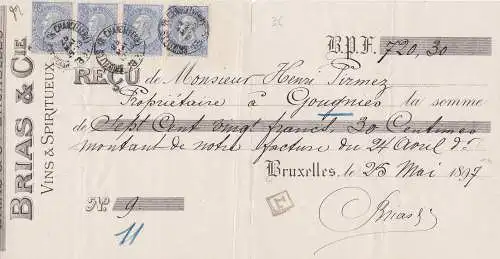 BRIAS & CIE
VINS & SPIRITUEUX
B.P.F. 720,30
REÇU de Monsieur Henri Pirmez
Propriétaire à Gougnies la somme
de Sept Cent vingt francs, 30 Centimes
montant de notre facture du 24 Avril dr
Bruxelles, le 25 Mai 1897
No. 9
11
Brias